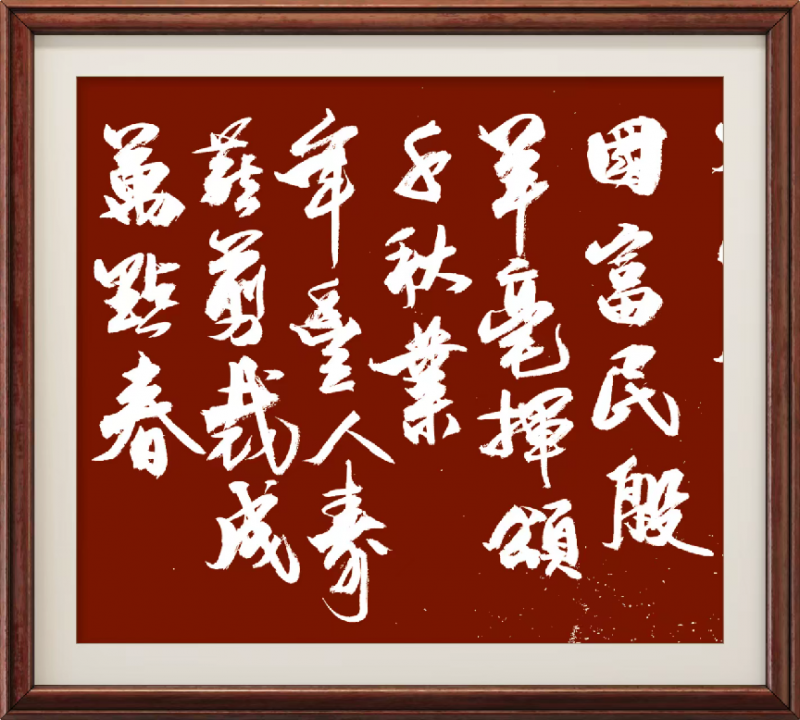 國富民殷
羊毫揮頌
千秋業
年豐人壽
燕剪裁成
萬點春